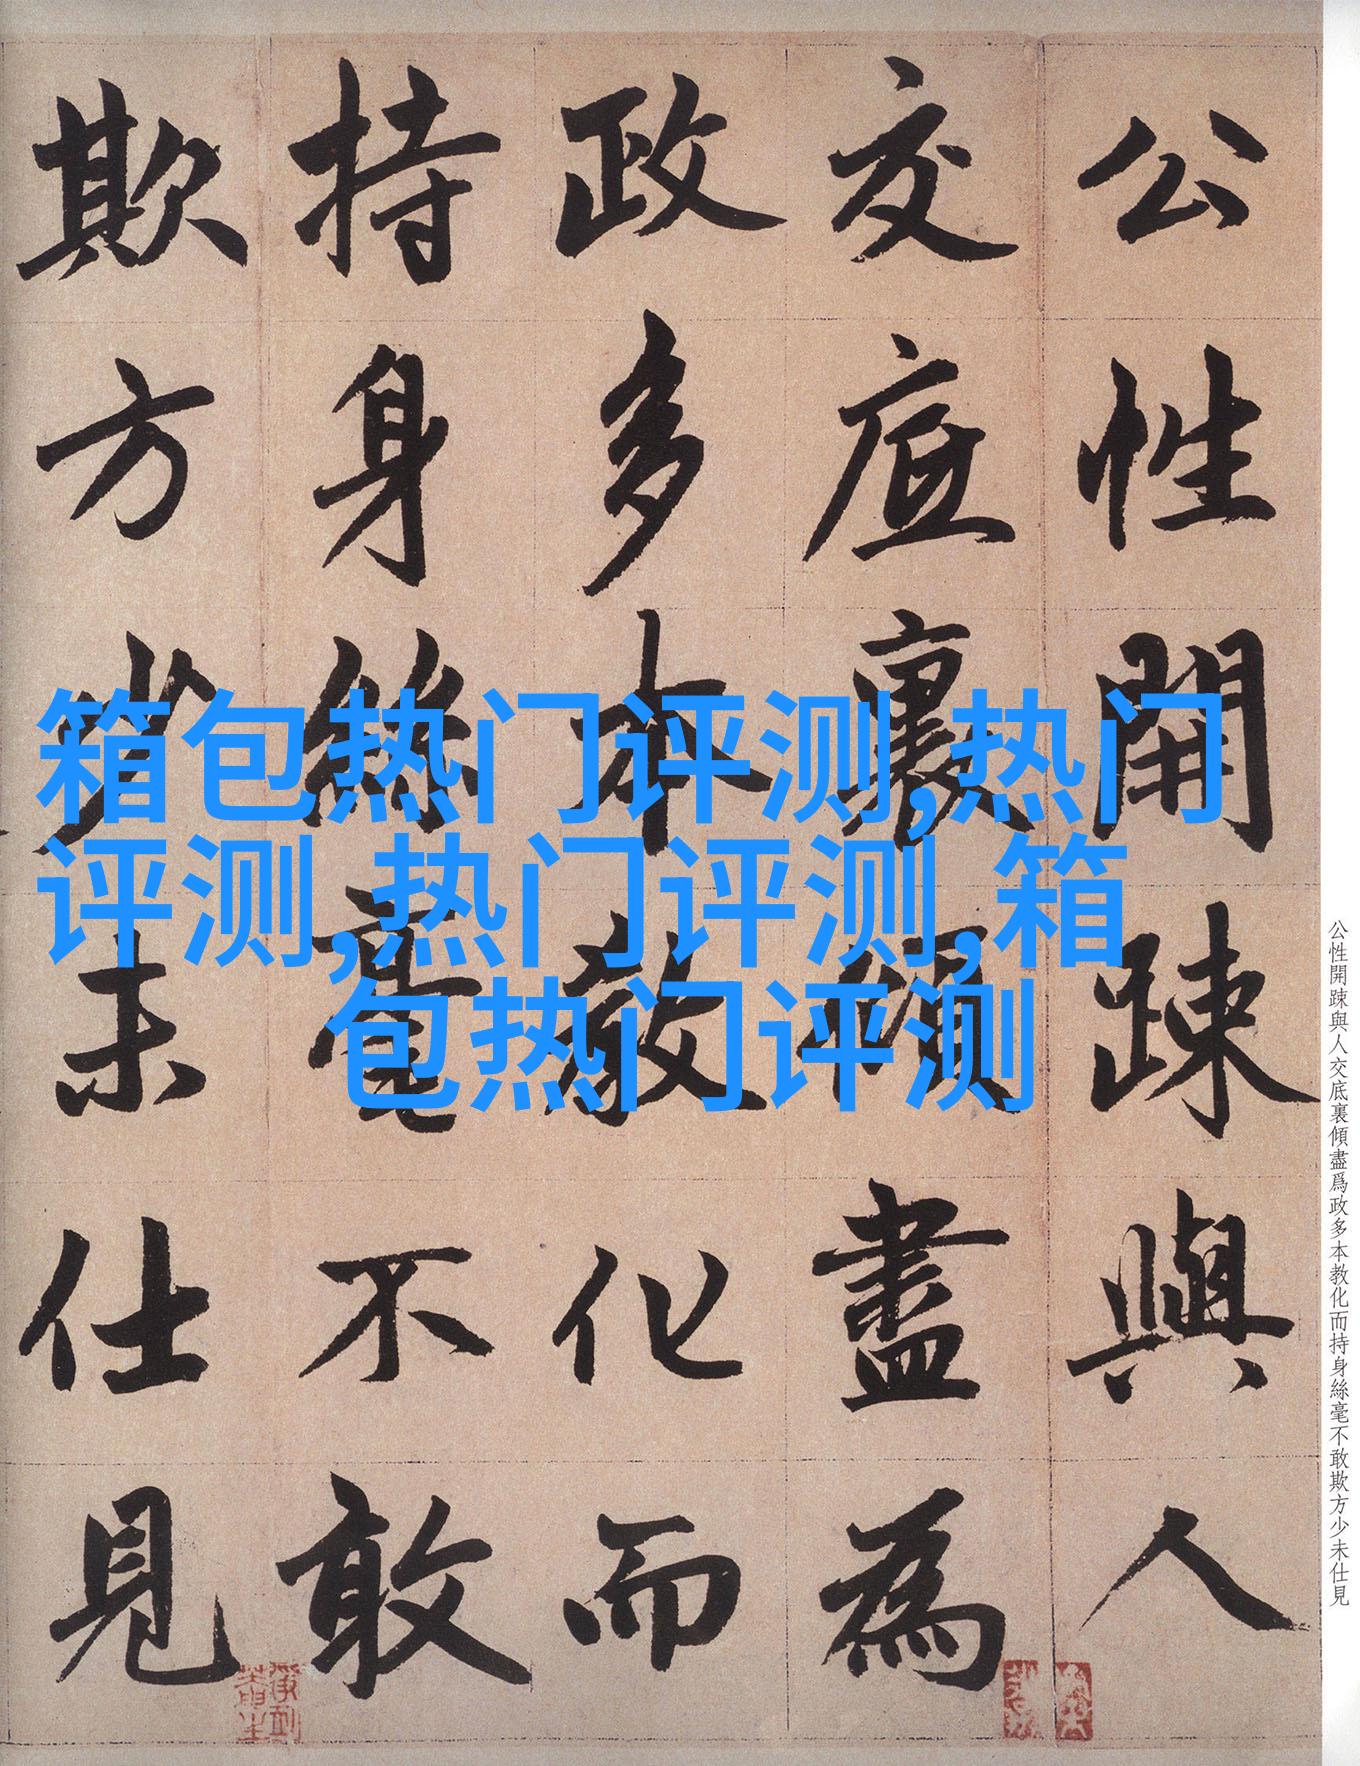 公性開踈與人
交底裏傾盡為
政多本教化而
持身絲毫不敢
欺方少未仕見
箱包热门评测,热门
评测,热门评测,箱
包热门评测
公性開踈與人交底裏傾盡爲政多本教化而持身絲毫不敢欺方少未仕見